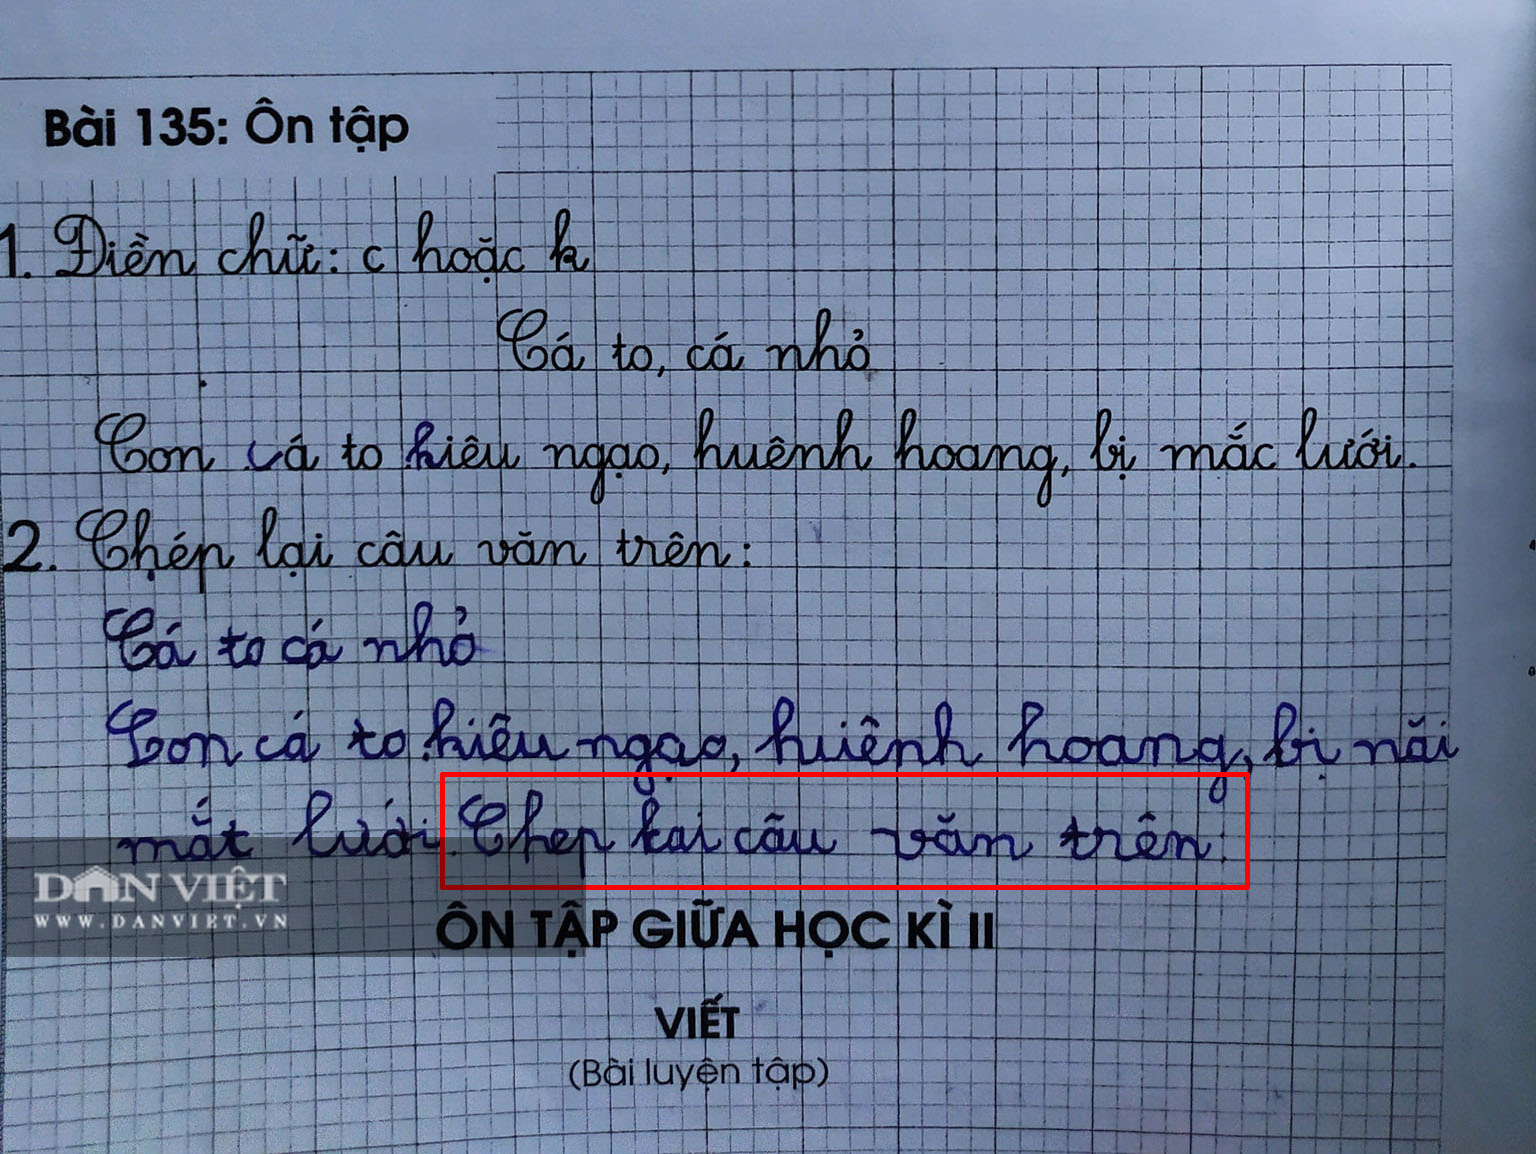 Bài 135: Ôn tập
1. Điền chữ: c hoặc k
Cá to, cá nhỏ
Con cá to kiêu ngạo, huênh hoang, bị mắc lưới.
2. Chép lại câu văn trên:
Cá to cá nhỏ
Con cá to kiêu ngạo, huiênh hoang, bị nãi
mắt lưới. Chep kai câu văn trên:
DÂN VIỆT
WWW.DANVIET.VN
ÔN TẬP GIỮA HỌC KÌ II
VIẾT
(Bài luyện tập)